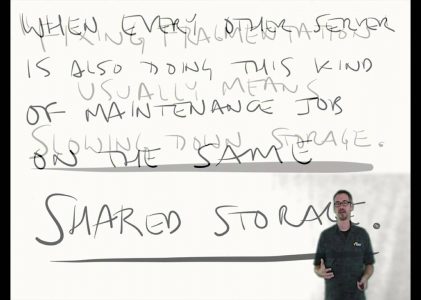 WHEN EVERY OTHER SERVER
FIXING FRAGMENTATION
IS ALSO DOING THIS KIND
USUALLY MEANS
OF MAINTENANCE JOB
SLOWING DOWN STORAGE.
ON THE SAME
SHARED STORAGE.